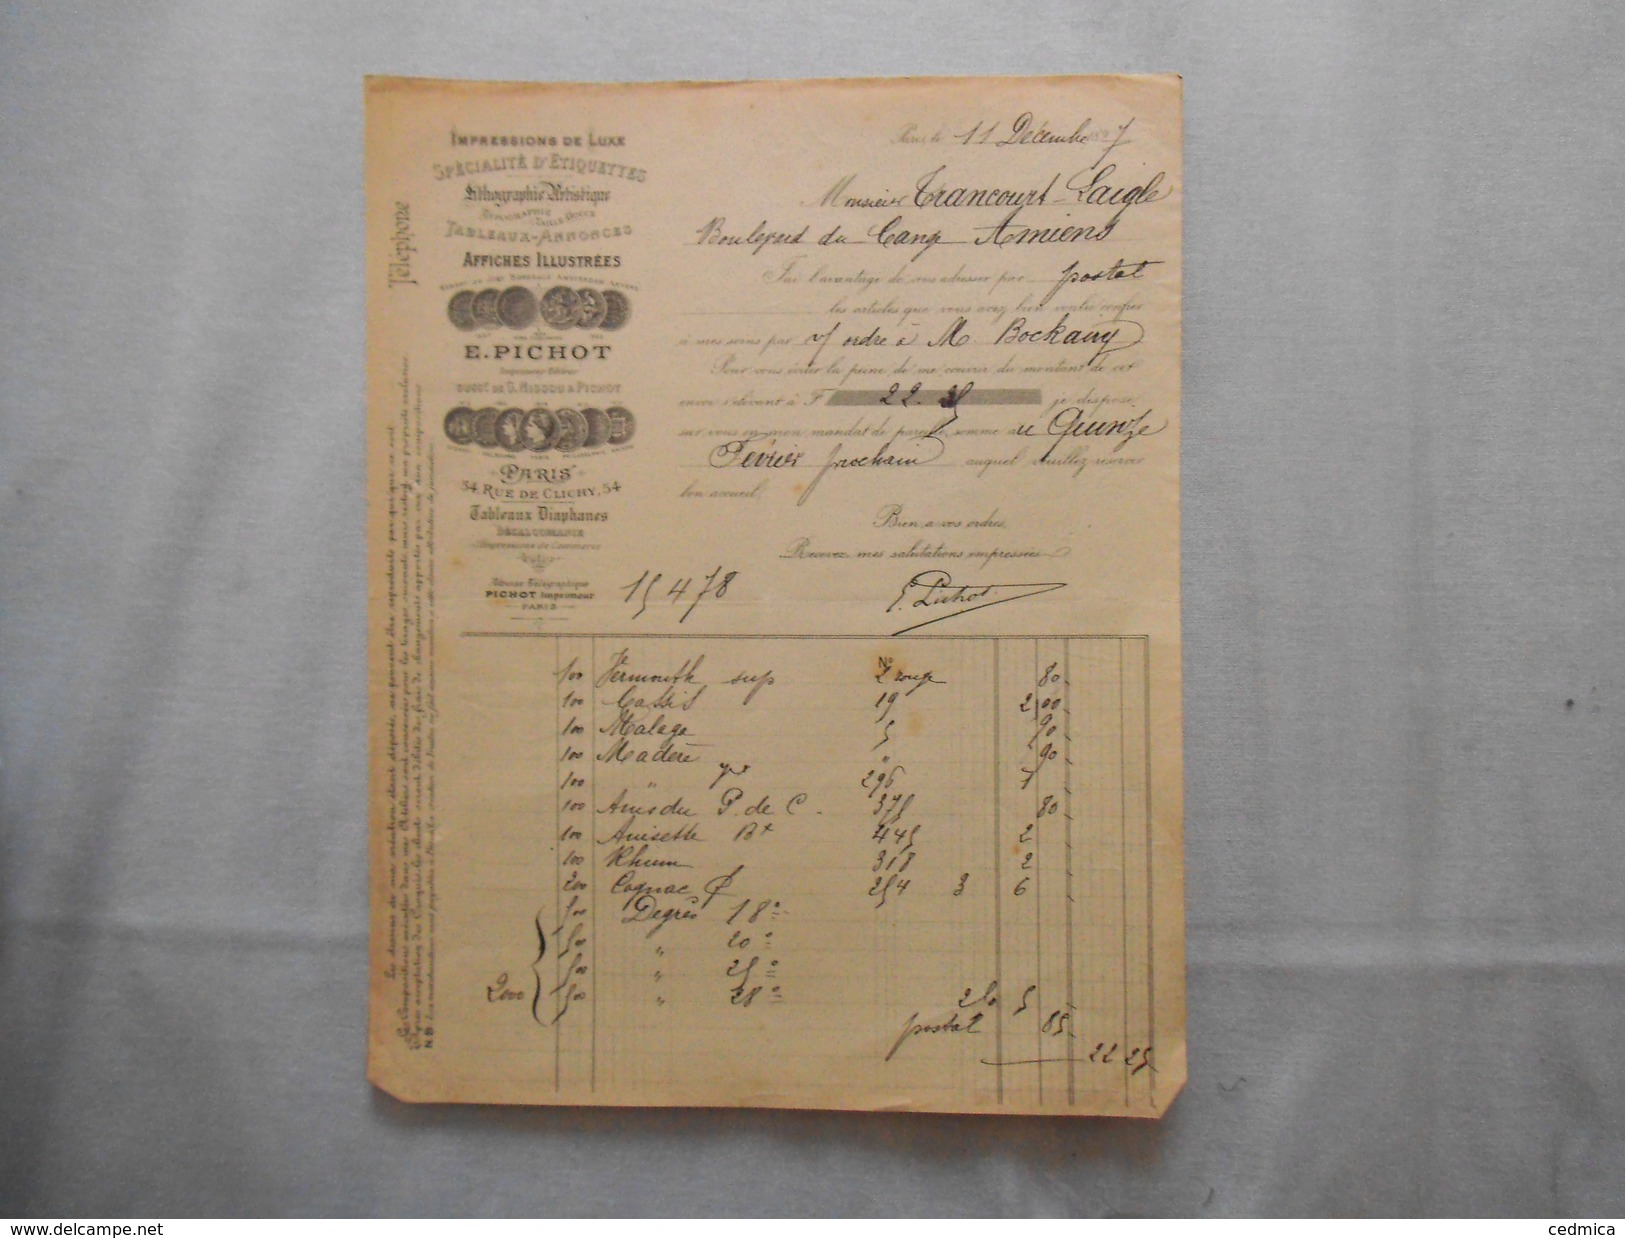 Téléphone
IMPRESSIONS DE LUXE
SPÉCIALITÉ D'ETIQUETTES
Lithographie Artistique
TYPOGRAPHIE
TAILLE DOUCE
TABLEAUX-ANNONCES
AFFICHES ILLUSTRÉES
E. PICHOT
Imprimeur Editeur
PICHOT
PARIS
54, RUE DE CLICHY, 54
Tableaux Diaphanes
DÉCALCOMANIE
Impressions de Commerce
Adresse Télégraphique
PICHOT Imprimeur
PARIS
Paris, le 11 Décembre 1897
Monsieur Trancourt-Laigle
Boulevard du Cange Amiens
J'ai l'avantage de vous adresser par postal
les articles que vous avez bien voulu confier
à mes soins par v/ ordre à M. Bockairy
Pour vous éviter la peine de me couvrir du montant de cet
envoi s'élevant à F 22.25 je dispose
sur vous en mon mandat de pareille somme au Quinze
Février prochain auquel veuillez réserver
bon accueil.
Bien à vos ordres,
Recevez mes salutations empressées
E. Pichot
15478
Nº
100 Vermouth sup 2 rouge 80
100 Cassis 19 2,00
100 Malaga 5 90
100 Madère " 90
100 " 296 1
100 Anis du P. de C. 375 80
100 Anisette Bx 445 2
100 Rhum 318 2
200 Cognac 254 3 6
500 Degrés 18°
500 " 20°
500 " 25°
2000 500 " 28° 250 5
postal 85
22 25
cedmica